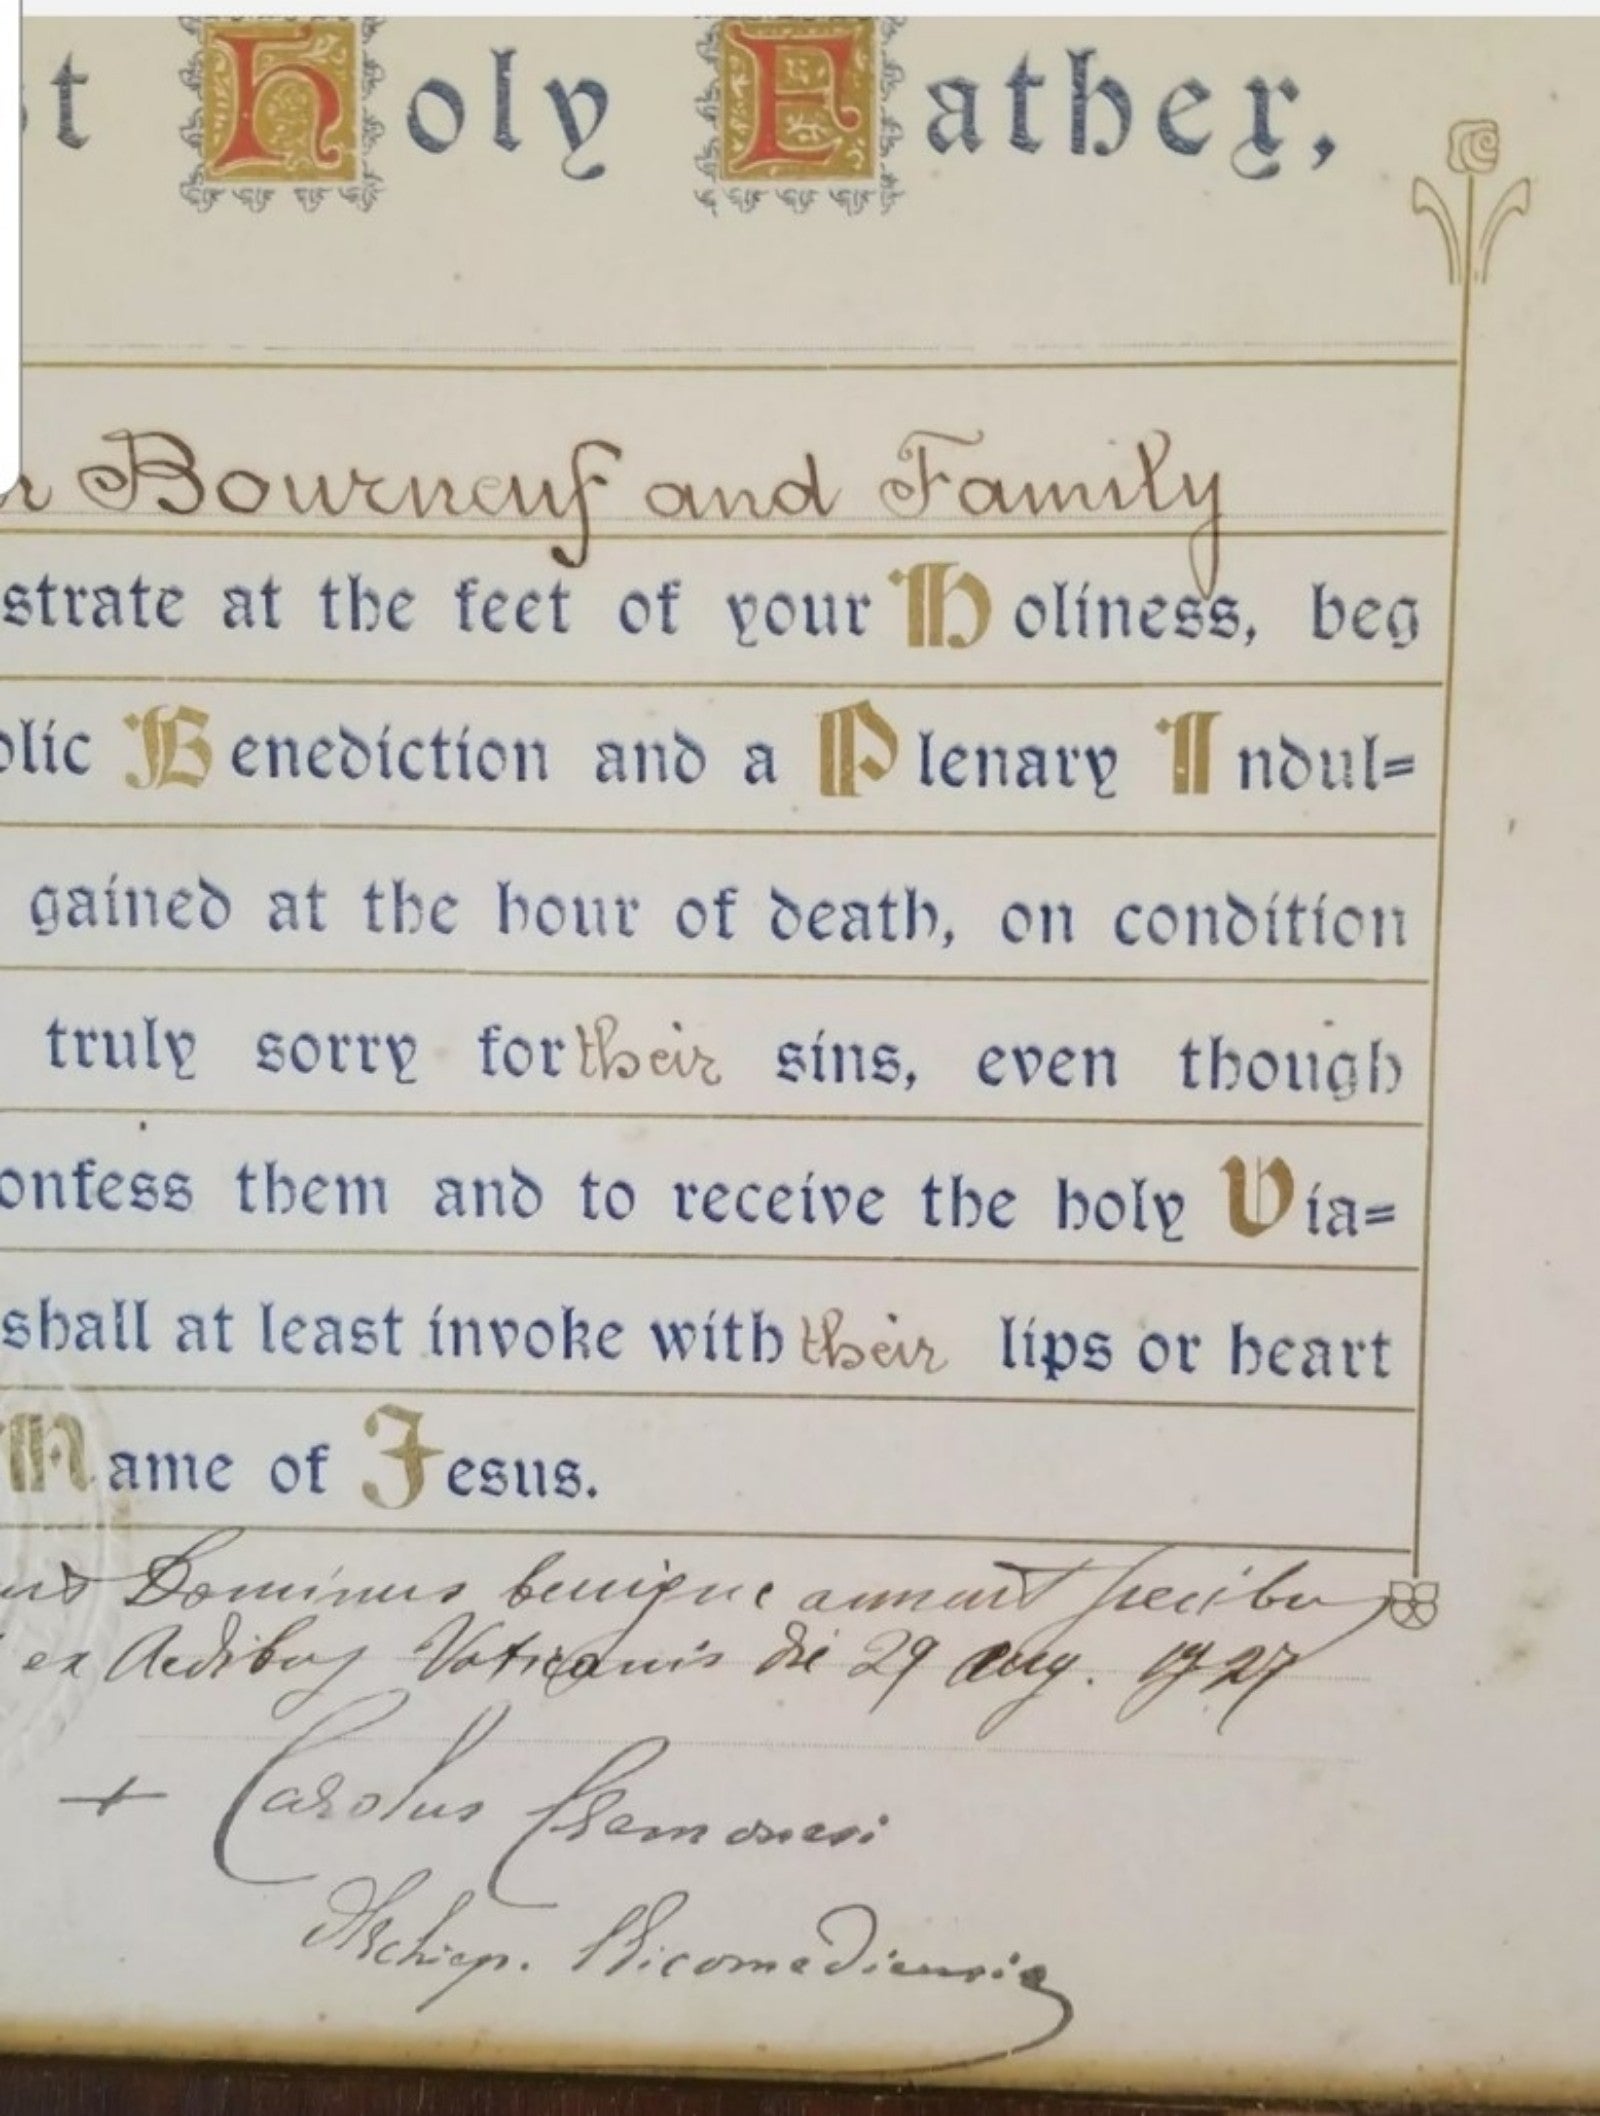 t Holy Father,
Bourneuf and Family
strate at the feet of your Holiness, beg
olic Benediction and a Plenary Indul=
gained at the hour of death, on condition
truly sorry for their sins, even though
onfess them and to receive the holy Via=
shall at least invoke with their lips or heart
Name of Jesus.
Dominus benigne annuit precibus
ex Aedibus Vaticanis die 29 Aug. 1927
+ Carolus Cremonesi
Archiep. Nicomediensis